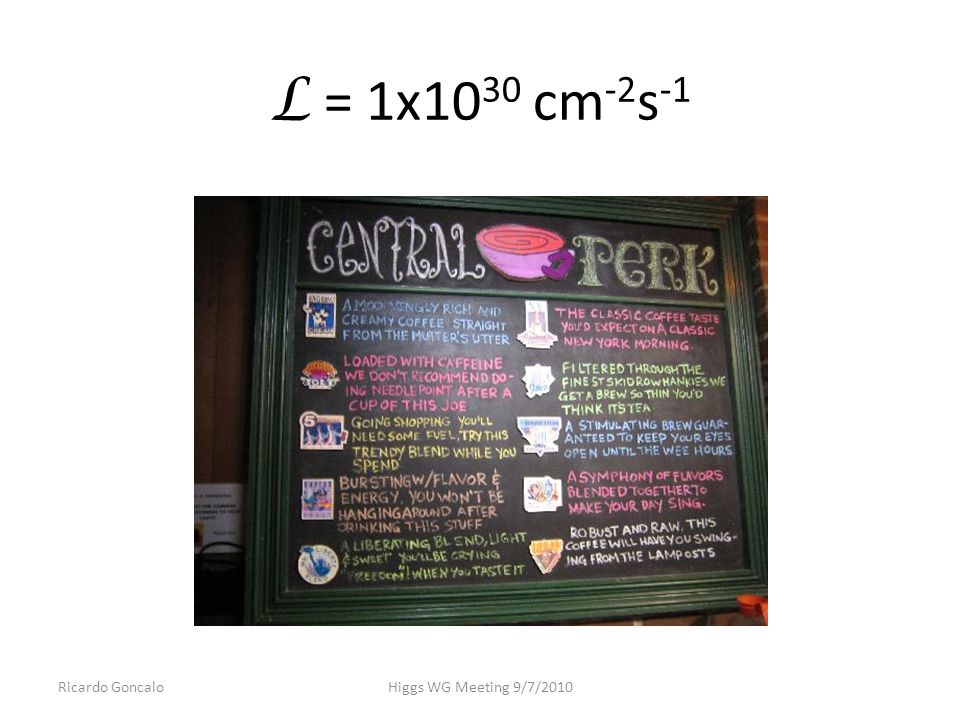 ℒ = 1x10³⁰ cm⁻²s⁻¹
CENTRAL PERK
A MOOOVINGLY RICH AND
CREAMY COFFEE STRAIGHT
FROM THE MUTTER'S UTTER
LOADED WITH CAFFEINE
WE DON'T RECOMMEND DO-
ING NEEDLEPOINT AFTER A
CUP OF THIS JOE
GOING SHOPPING YOU'LL
NEED SOME FUEL, TRY THIS
TRENDY BLEND WHILE YOU
SPEND
BURSTING W/FLAVOR &
ENERGY, YOU WON'T BE
HANGING AROUND AFTER
DRINKING THIS STUFF
A LIBERATING BLEND, LIGHT
& SWEET YOU'LL BE CRYING
"FREEDOM"! WHEN YOU TASTE IT
THE CLASSIC COFFEE TASTE
YOU'D EXPECT ON A CLASSIC
NEW YORK MORNING.
FILTERED THROUGH THE
FINEST SKID ROW HANKIES WE
GET A BREW SO THIN YOU'D
THINK IT'S TEA
A STIMULATING BREW GUAR-
ANTEED TO KEEP YOUR EYES
OPEN UNTIL THE WEE HOURS
A SYMPHONY OF FLAVORS
BLENDED TOGETHER TO
MAKE YOUR DAY SING-
ROBUST AND RAW. THIS
COFFEE WILL HAVE YOU SWING-
ING FROM THE LAMPOSTS
Ricardo Goncalo
Higgs WG Meeting 9/7/2010